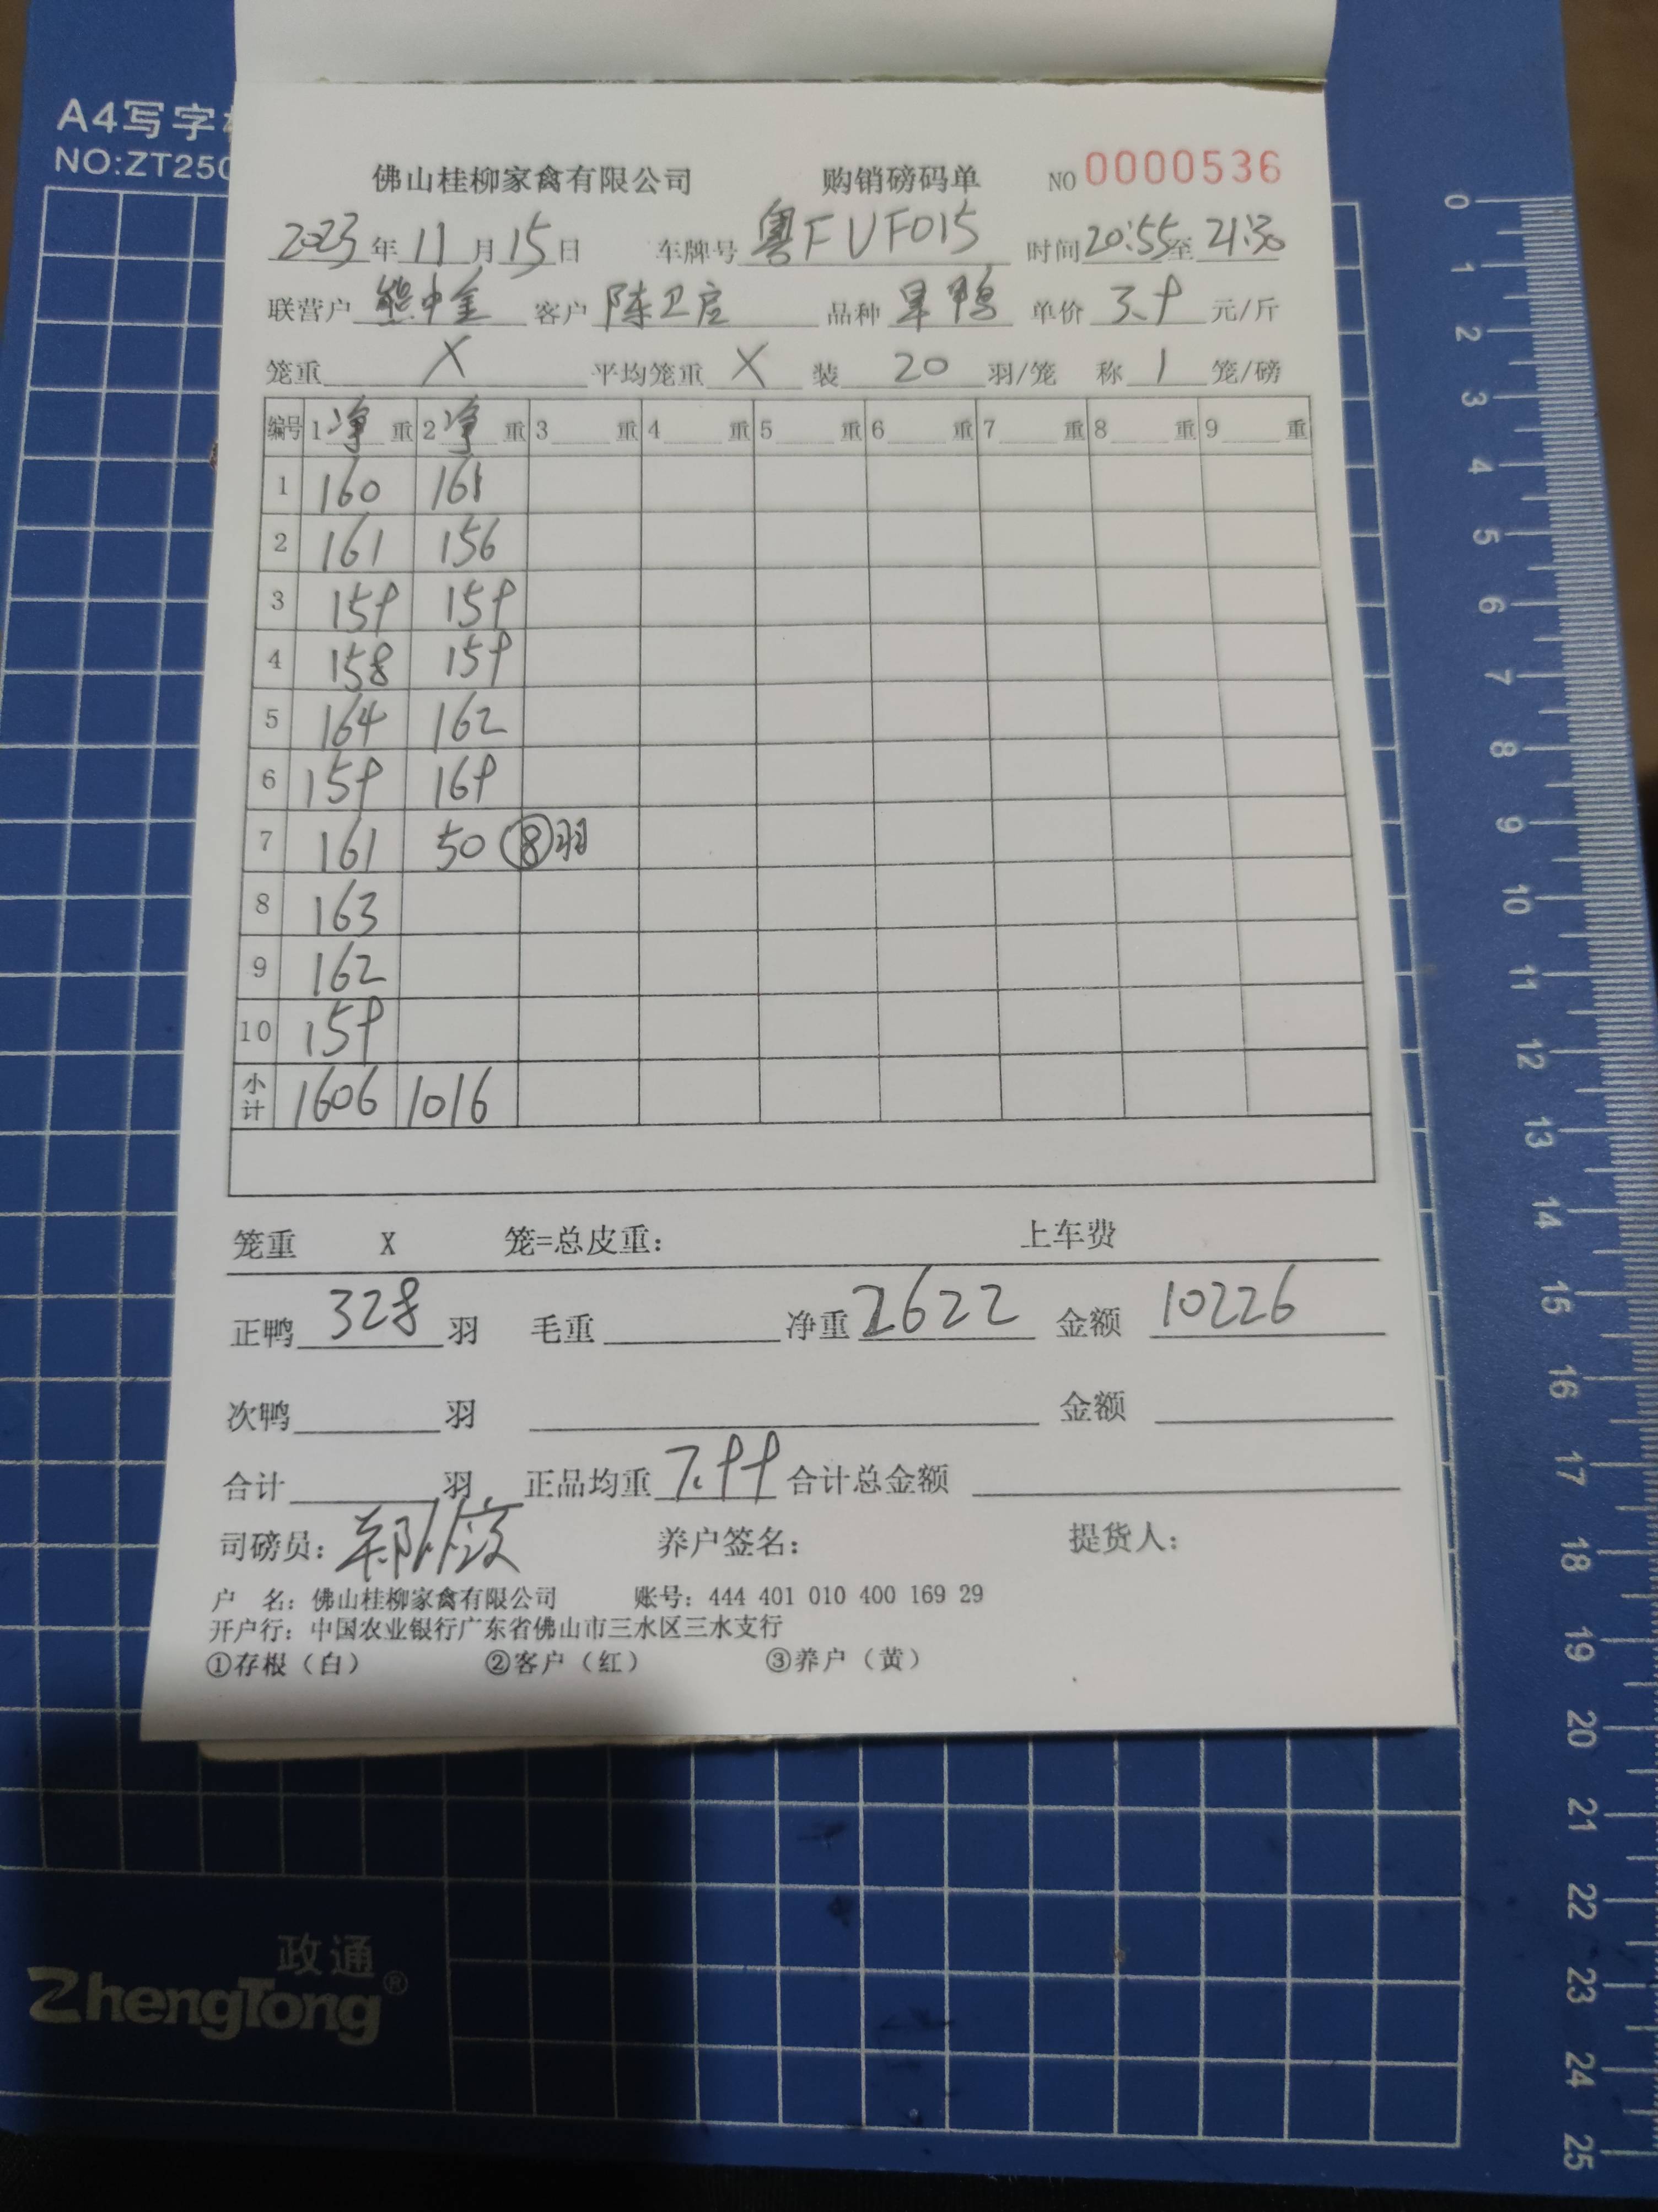 A4写字
NO:ZT250
佛山桂柳家禽有限公司 购销磅码单 NO 0000536
2023年11月15日 车牌号 粤FUF015 时间20:55至21:30
联营户 熊中金 客户 陈卫启 品种 旱鸭 单价 3.9 元/斤
笼重 X 平均笼重 X 装 20 羽/笼 称 1 笼/磅
编号 1净重 2净重 3 重 4 重 5 重 6 重 7 重 8 重 9 重
1 160 161
2 161 156
3 159 159
4 158 159
5 164 162
6 159 169
7 161 50 ⑧羽
8 163
9 162
10 159
小计 1606 1016
笼重 X 笼=总皮重: 上车费
正鸭 328 羽 毛重 净重 2622 金额 10226
次鸭 羽 金额
合计 羽 正品均重 7.99 合计总金额
司磅员: 养户签名: 提货人:
户 名: 佛山桂柳家禽有限公司 账号: 444 401 010 400 169 29
开户行: 中国农业银行广东省佛山市三水区三水支行
①存根（白） ②客户（红） ③养户（黄）
政通
ZhengTong®
0
1
2
3
4
5
6
7
8
9
10
11
12
13
14
15
16
17
18
19
20
21
22
23
24
25